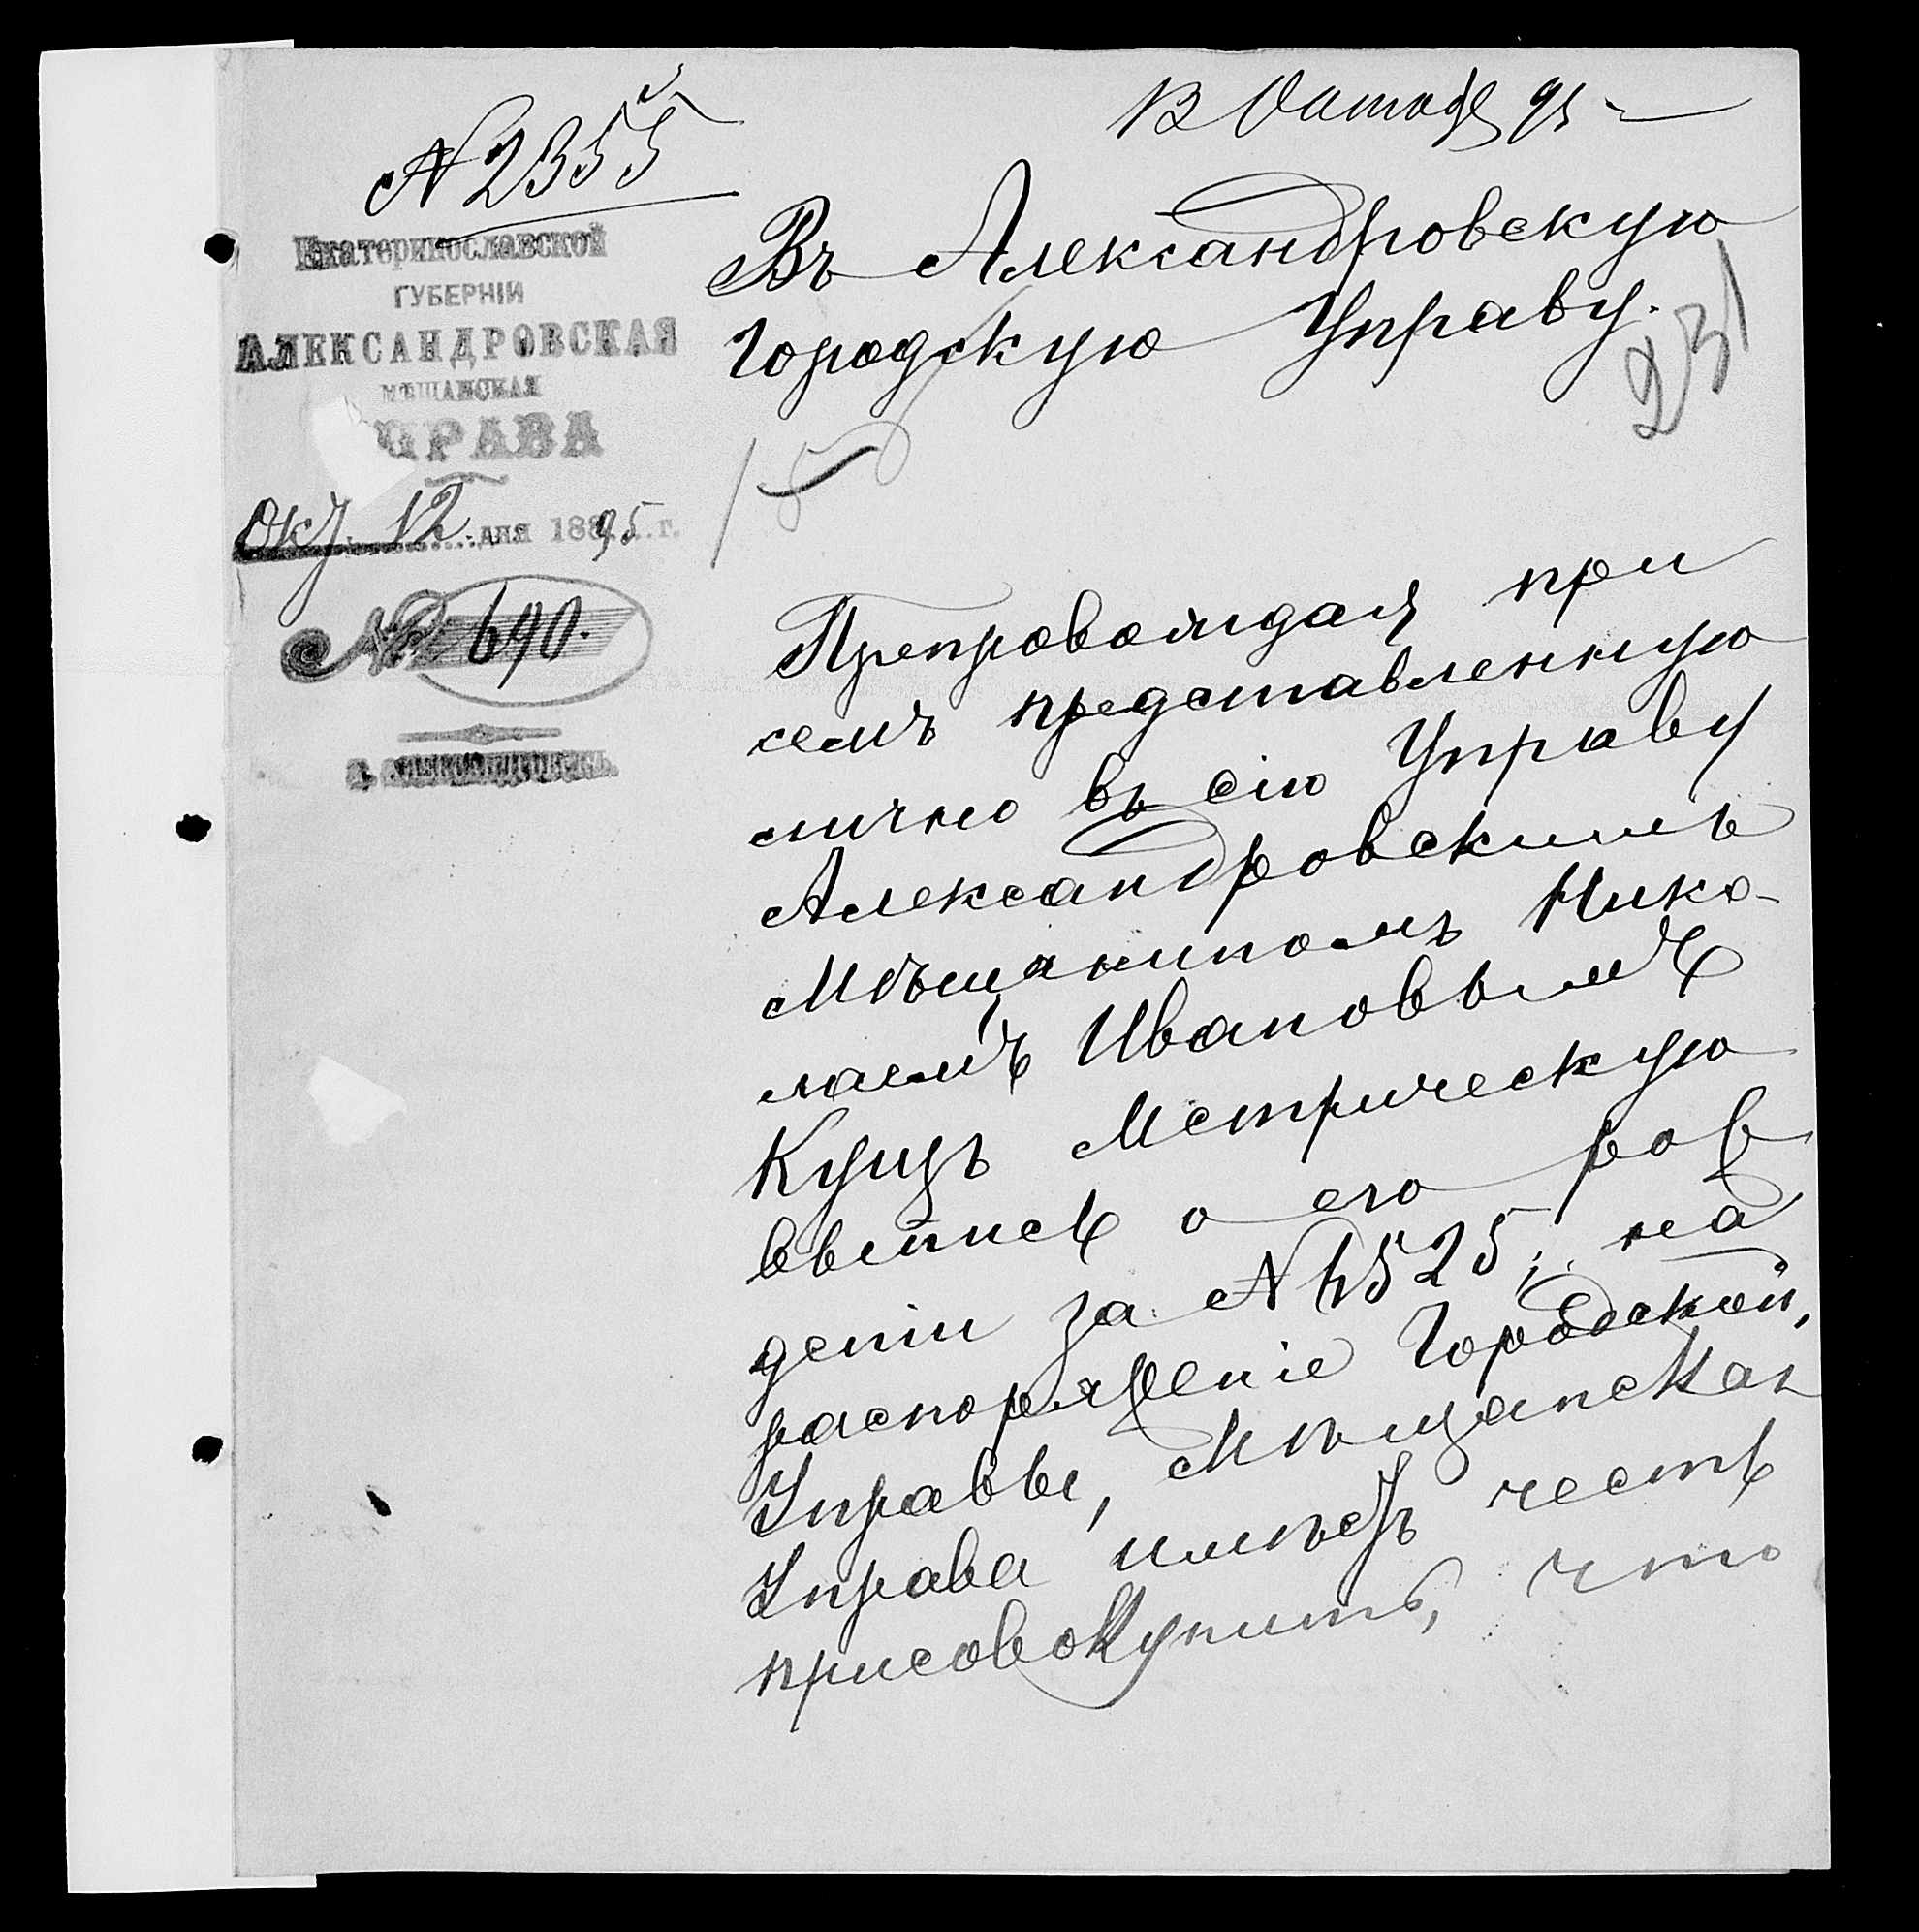 № 2355
13 Октобр 95
Екатеринославской
ГУБЕРНІИ
АЛЕКСАНДРОВСКАЯ
МѢЩАНСКАЯ
УПРАВА
Окт. 12 дня 1895 г.
№ 690.
г. Александровскъ.
Въ Александровскую
Городскую Управу.
231
Препровождая при
семъ представленную
лично въ сію Управу
Александровскимъ
Мѣщаниномъ Нико-
лаемъ Ивановымъ
Куцъ Метрическую
выпись о его рож
деніи за № 4525, на
распоряженіе Городской
Управы, Мѣщанская
Управа имѣетъ честь
присовокупить, что